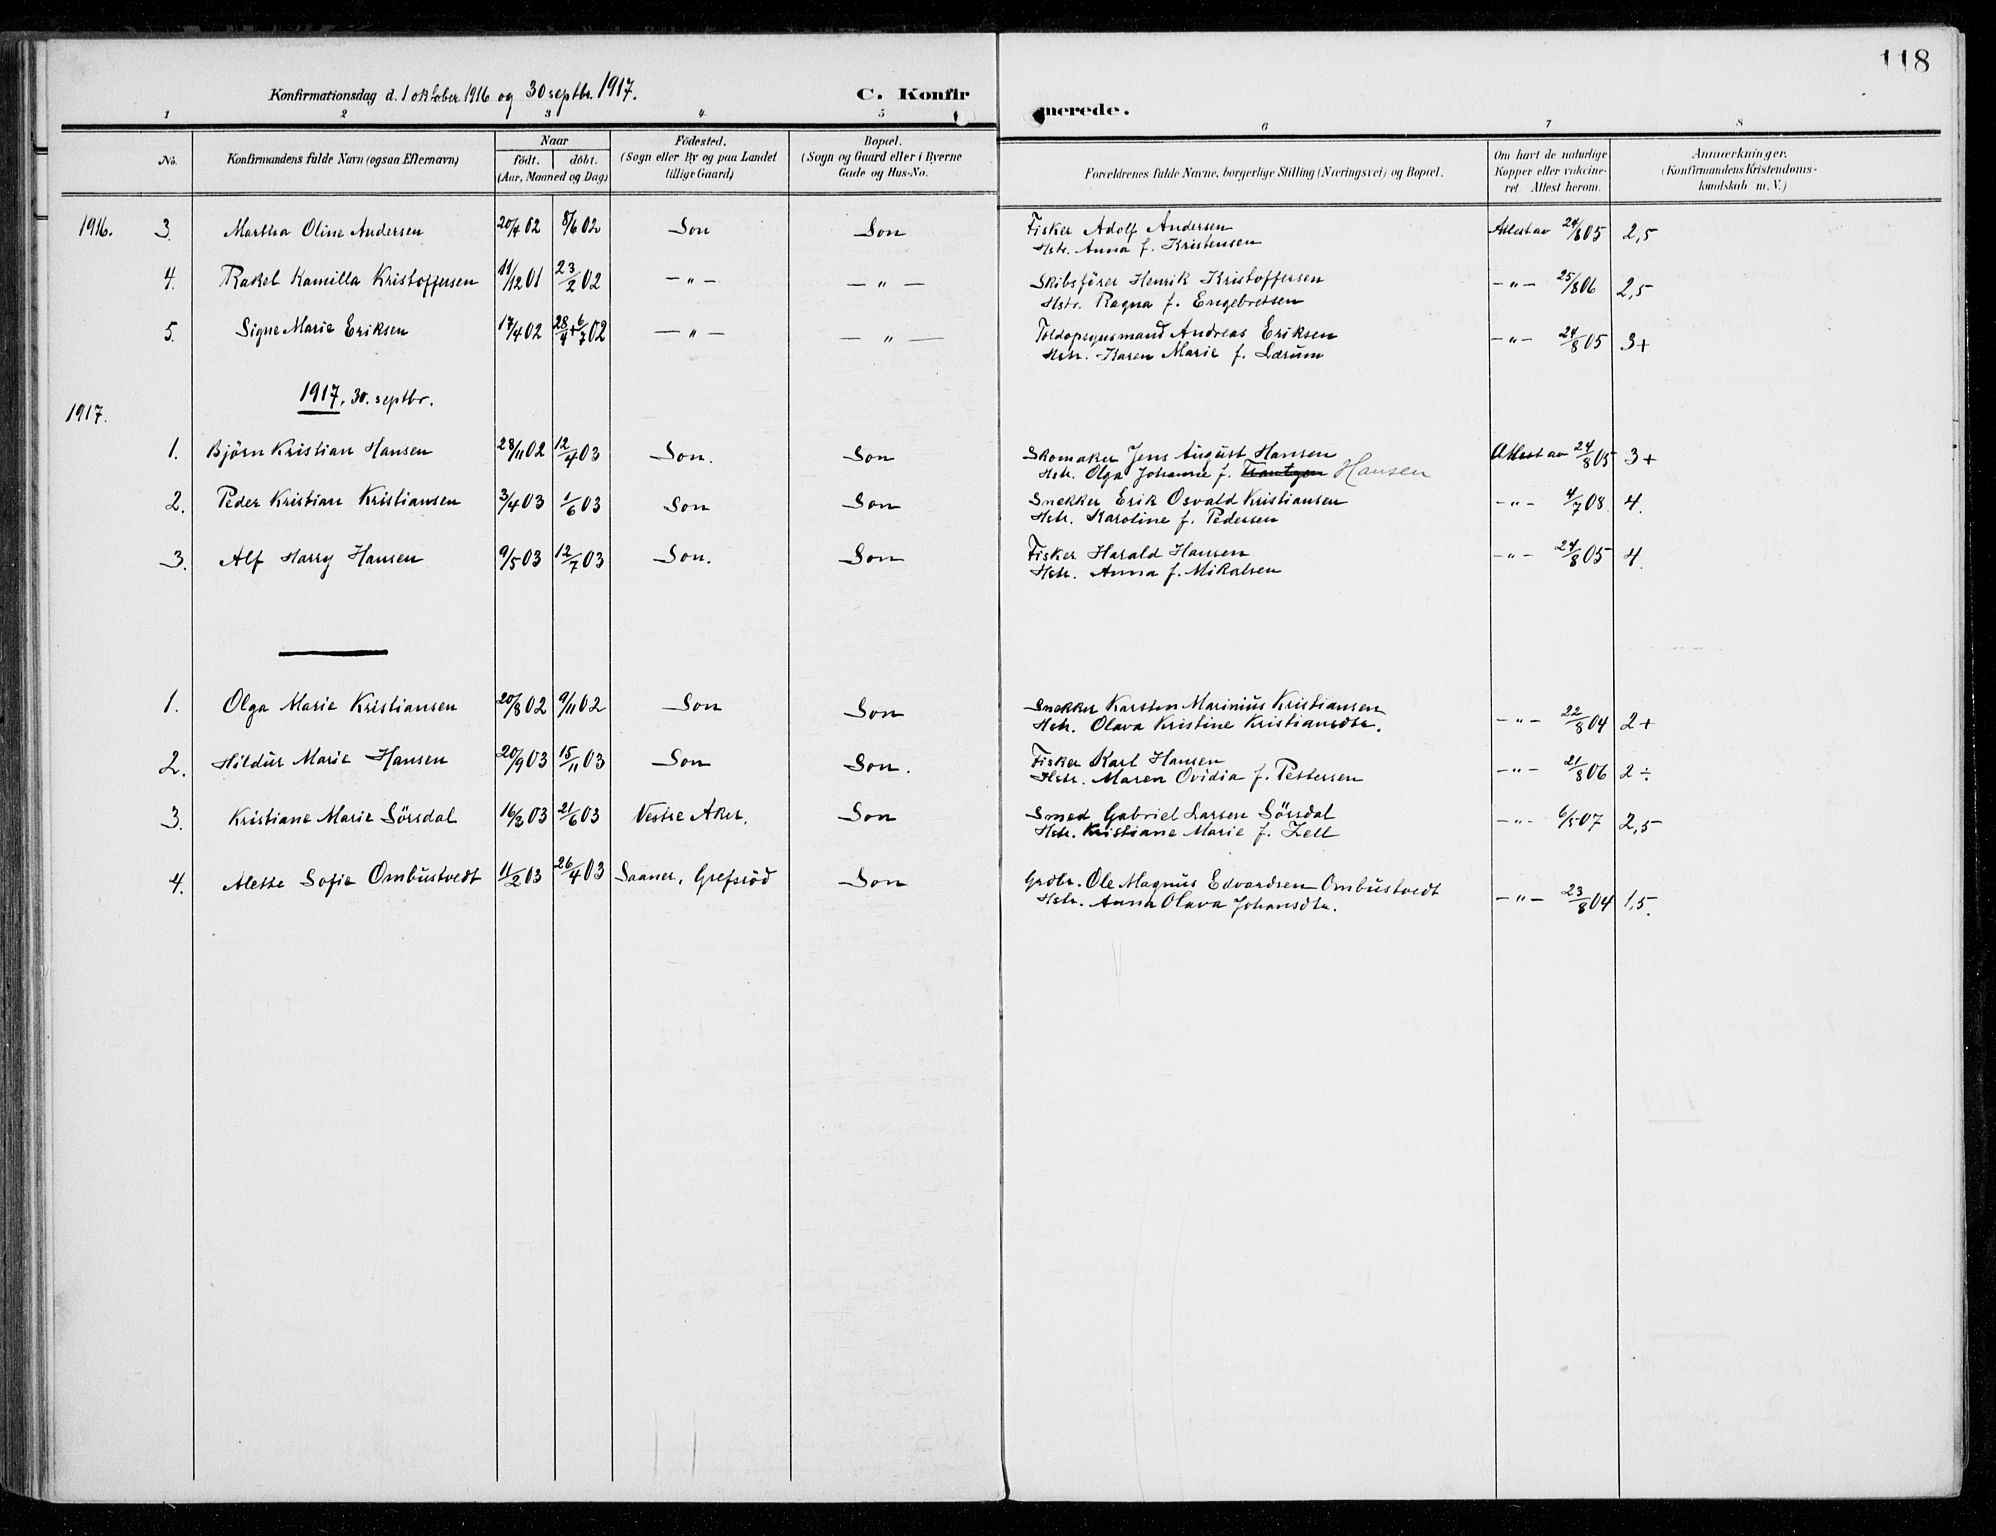 118
Konfirmationsdag d. 1 oktober 1916 og 30 septbr. 1917.
C. Konfirmerede.
1 2 3 4 5 6 7 8
No. Konfirmandens fulde Navn (ogsaa Efternavn) Naar födt. döbt. (Aar, Maaned og Dag) Födested. (Sogn eller By og paa Landet tillige Gaard) Bopæl. (Sogn og Gaard eller i Byerne Gade og Hus-No. Forældrenes fulde Navne, borgerlige Stilling (Næringsvei) og Bopæl. Om havt de naturlige Kopper eller vakcineret. Attest herom. Anmærkninger. (Konfirmandens Kristendomskundskab m. V.)
1916. 3. Martha Oline Andersen 20/4 02 8/6 02 Son Son Fisker Adolf Andersen Attest av 24/8 05 2,5
Hstr. Anna f. Kristensen
4. Rakel Kamilla Kristoffersen 11/12 01 23/2 02 — " — — " — Skibsfører Henrik Kristoffersen — " — 25/8 06 2,5
Hstr. Ragna f. Engebretsen
5. Signe Marie Eriksen 17/4 02 28/4 + 6/7 02 — " — — " — Toldopsynsmand Andreas Eriksen — " — 24/8 05 3+
Hstr. Karen Marie f. Lærum
1917. 1917. 30. septbr.
1. Bjørn Kristian Hansen 28/11 02 12/4 03 Son. Son Skomaker Jens August Hansen Attest av 24/8 05 3+
Hstr. Olga Johanne f. Hansen
2. Peder Kristian Kristiansen 3/4 03 1/6 03 Son Son Snekker Erik Osvald Kristiansen — " — 4/7 08 4.
Hstr. Karoline f. Pedersen
3. Alf Harry Hansen 9/5 03 12/7 03 Son. Son Fisker Harald Hansen — " — 24/8 05 4.
Hstr. Anna f. Mikalsen
1. Olga Marie Kristiansen 20/8 02 9/11 02 Son Son Snekker Karsten Marinius Kristiansen — " — 22/8 04 2+
Hstr. Olava Kristine Kristiansdtr.
2. Hildur Marie Hansen 20/9 03 15/11 03 Son Son. Fisker Karl Hansen — " — 21/8 06 2÷
Hstr. Maren Ovidia f. Pettersen
3. Kristiane Marie Sörsdal 16/3 03 21/6 03 Vestre Aker. Son Smed Gabriel Larsen Sörsdal — " — 6/5 07 2,5
Hstr. Kristiane Marie f. Zell
4. Alette Sofie Ombustvedt 11/2 03 26/4 03 Saaner, Grefsröd Son Grdbr. Ole Magnus Edvardsen Ombustvedt — " — 23/8 04 1,5.
Hstr. Anna Olava Johansdtr.